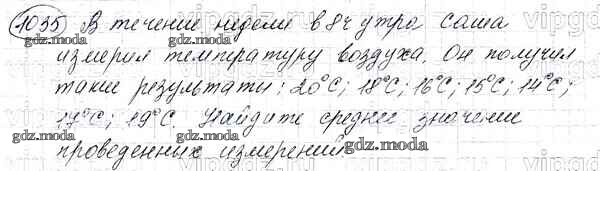 1035 В течение недели в 8 ч утра Саша
измерил температуру воздуха. Он получил
такие результаты: 20°С; 18°С; 16°С; 15°С; 14°С;
17°С; 19°С. Найдите среднее значение
проведенных измерений.
gdz.moda
gdz.moda
gdz.moda
gdz.moda
gdz.moda
gdz.moda
gdz.moda